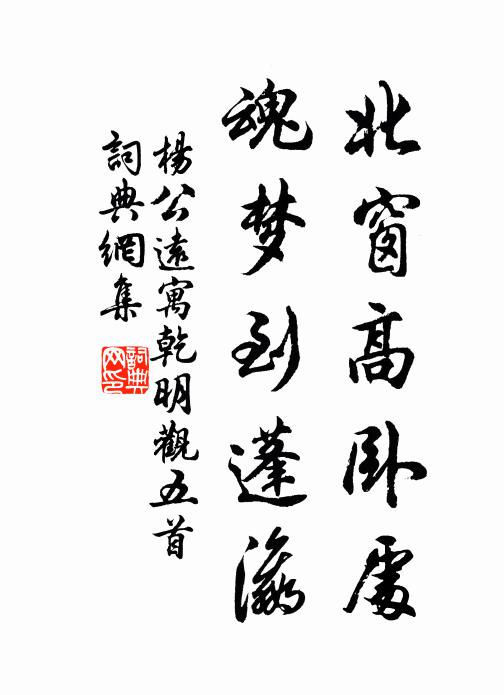 北窗高卧處
魂梦到蓬瀛
楊公遠寓乾明觀五首
詞典網集
詞典
网印